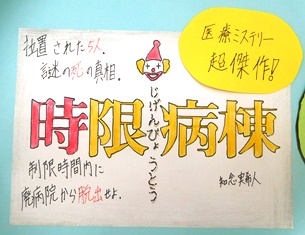 位置された5人.
謎の死の真相.
医療ミステリー
超傑作!
じげんびょうとう
時限病棟
制限時間内に
廃病院から脱出せよ.
知念実希人